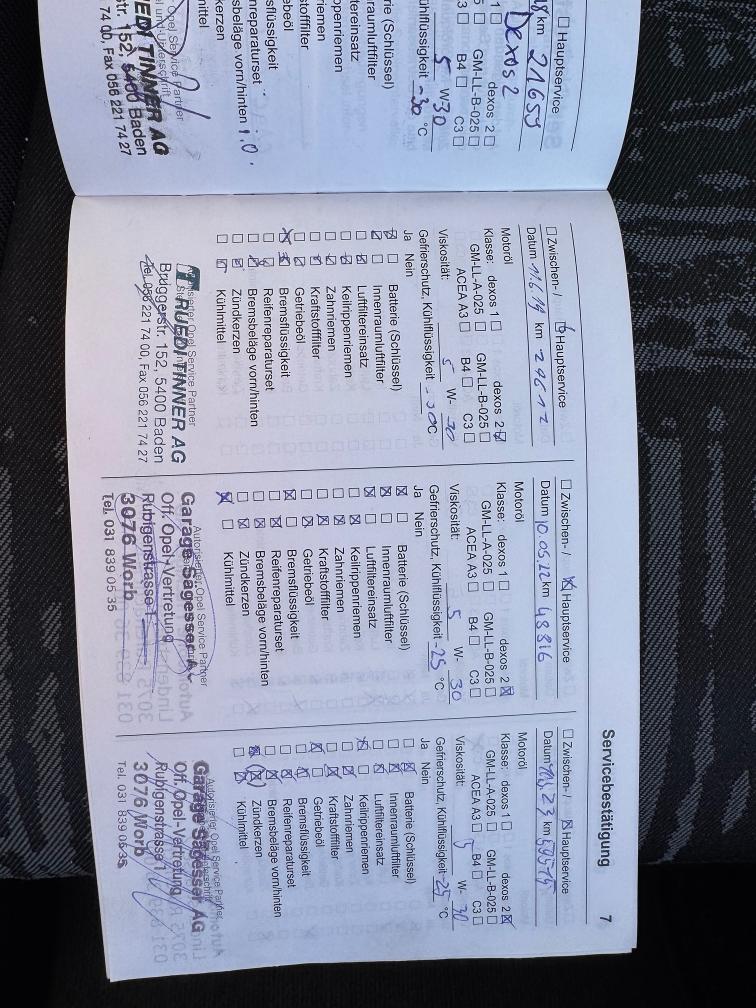 Servicebestätigung 7
Hauptservice
km 21659
dexos 2
Dexos 2
GM-LL-B-025
B4 C3
5 W 30
Kühlflüssigkeit -30 °C
(Schlüssel)
vorn/hinten i.o.
Opel Service Partner
RUEDI TINNER AG
str. 152, 5400 Baden
74 00, Fax 056 221 74 27
Zwischen- / Hauptservice
Datum 11.6.19 km 29612
Motoröl
Klasse: dexos 1 dexos 2
GM-LL-A-025 GM-LL-B-025
ACEA A3 B4 C3
Viskosität: 5 W- 30
Gefrierschutz, Kühlflüssigkeit -30 °C
Ja Nein
Batterie (Schlüssel)
Innenraumluftfilter
Luftfiltereinsatz
Keilrippenriemen
Zahnriemen
Kraftstofffilter
Getriebeöl
Bremsflüssigkeit
Reifenreparaturset
Bremsbeläge vorn/hinten
Zündkerzen
Kühlmittel
Opel Service Partner
RUEDI TINNER AG
Bruggerstr. 152, 5400 Baden
Tel. 056 221 74 00, Fax 056 221 74 27
Zwischen- / Hauptservice
Datum 10.05.22 km 43816
Motoröl
Klasse: dexos 1 dexos 2
GM-LL-A-025 GM-LL-B-025
ACEA A3 B4 C3
Viskosität: 5 W- 30
Gefrierschutz, Kühlflüssigkeit -25 °C
Ja Nein
Batterie (Schlüssel)
Innenraumluftfilter
Luftfiltereinsatz
Keilrippenriemen
Zahnriemen
Kraftstofffilter
Getriebeöl
Bremsflüssigkeit
Reifenreparaturset
Bremsbeläge vorn/hinten
Zündkerzen
Kühlmittel
Autorisierter Opel Service Partner
Garage Sägesser AG
Off. Opel-Vertretung
Rubigenstrasse 1
3076 Worb
Tel. 031 839 05 35
Zwischen- / Hauptservice
Datum km
Motoröl
Klasse: dexos 1 dexos 2
GM-LL-A-025 GM-LL-B-025
ACEA A3 B4 C3
Viskosität: 5 W- 30
Gefrierschutz, Kühlflüssigkeit -25 °C
Ja Nein
Batterie (Schlüssel)
Innenraumluftfilter
Luftfiltereinsatz
Keilrippenriemen
Zahnriemen
Kraftstofffilter
Getriebeöl
Bremsflüssigkeit
Reifenreparaturset
Bremsbeläge vorn/hinten
Zündkerzen
Kühlmittel
Autorisierter Opel Service Partner
Garage Sägesser AG
Off. Opel-Vertretung
Rubigenstrasse 1
3076 Worb
Tel. 031 839 05 35